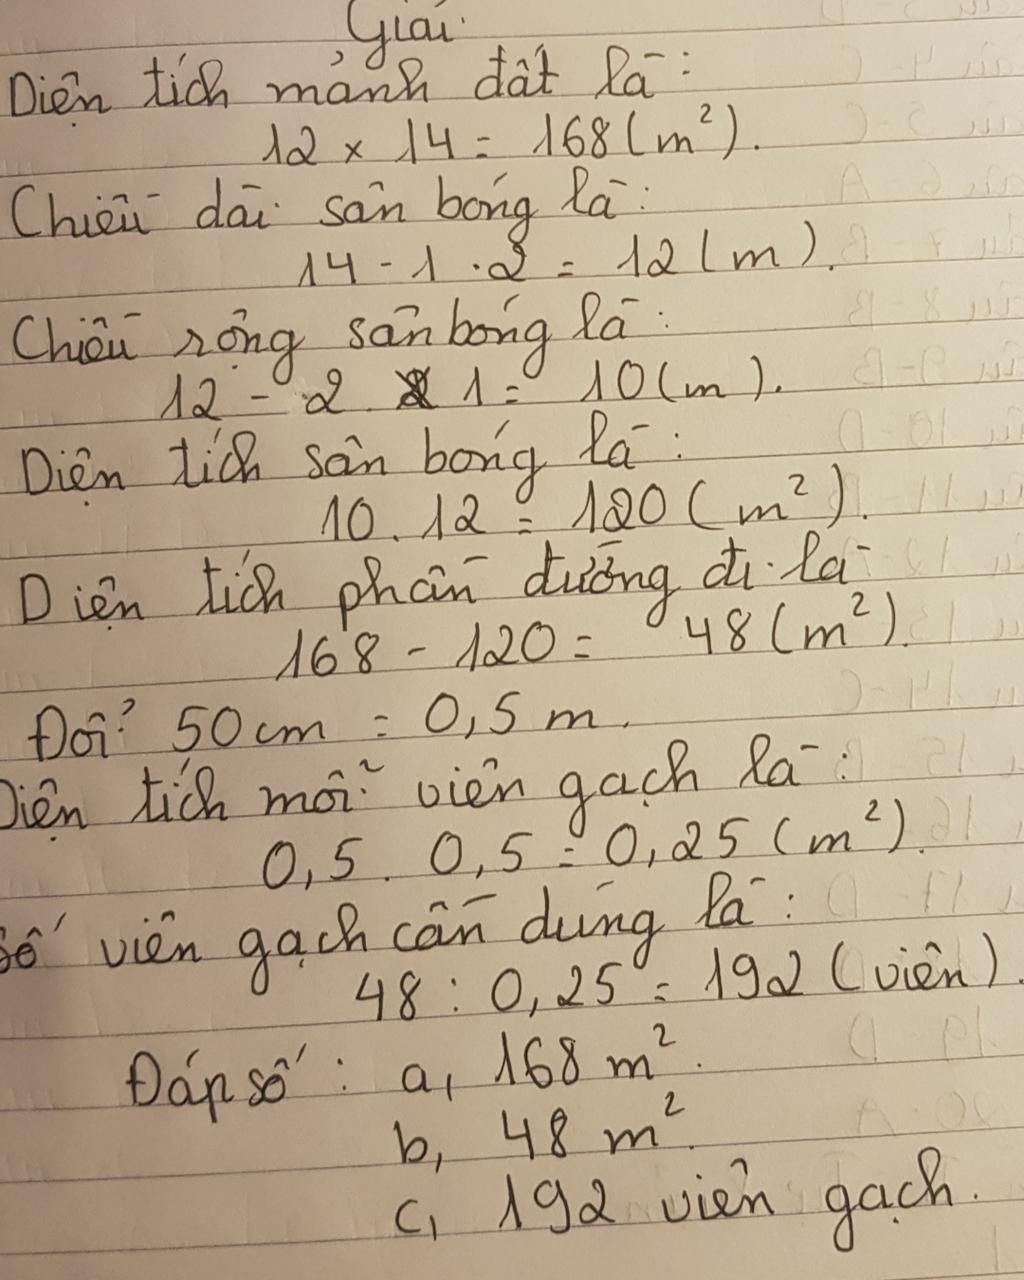 Giải
Diện tích mảnh đất là:
12 x 14 = 168 (m²).
Chiều dài sân bóng là:
14 - 1 . 2 = 12 (m).
Chiều rộng sân bóng là:
12 - 2 . 1 = 10 (m).
Diện tích sân bóng là:
10 . 12 = 120 (m²).
Diện tích phần đường đi là
168 - 120 = 48 (m²).
Đổi 50 cm = 0,5 m.
Diện tích mỗi viên gạch là:
0,5 . 0,5 = 0,25 (m²).
Số viên gạch cần dùng là:
48 : 0,25 = 192 (viên).
Đáp số: a, 168 m².
b, 48 m².
c, 192 viên gạch.